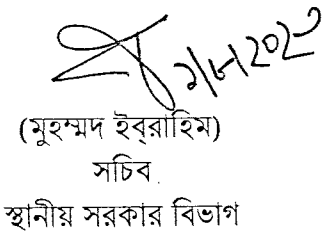 (মুহম্মদ ইবরাহিম)
সচিব
স্থানীয় সরকার বিভাগ